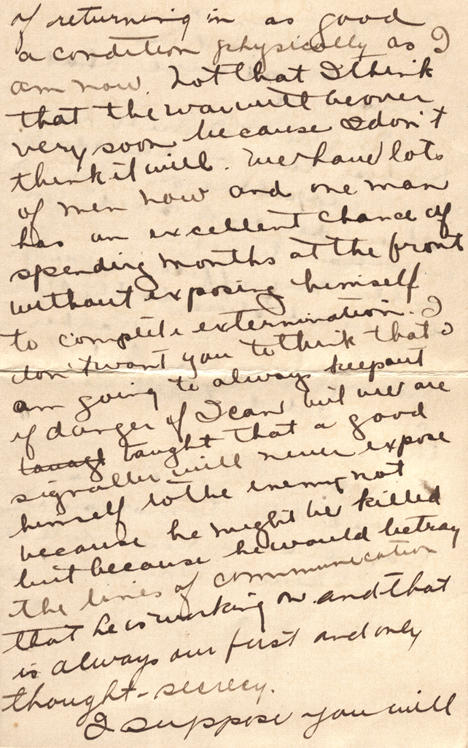 of returning in as good
a condition physically as I
am now. Not that I think
that the war will be over
very soon because I don't
think it will. We have lots
of men now and one man
has an excellent chance of
spending months at the front
without exposing himself
to complete extermination. I
don't want you to think that I
am going to always keep out
of danger if I can but we are
taught taught that a good
signaller will never expose
himself to the enemy not
because he might be killed
but because he would betray
the lines of communication
that he is working on and that
is always our first and only
thought - secrecy.
I suppose you will